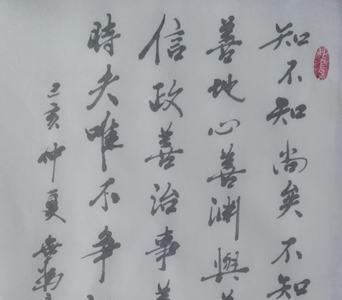 知不知尚矣不知
善地心善渊與善
信政善治事善
時夫唯不争
己亥仲夏